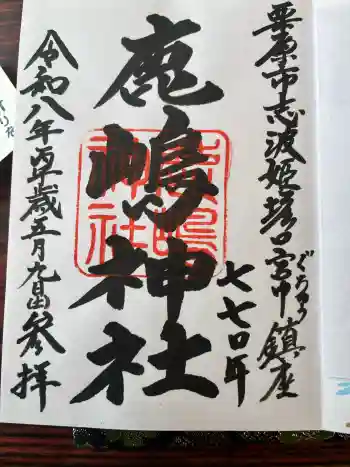 栗原市志波姫堀口宮中鎮座
七七〇年
鹿嶋神社
鹿嶋
神社
令和八年丙午歳五月九日参拝